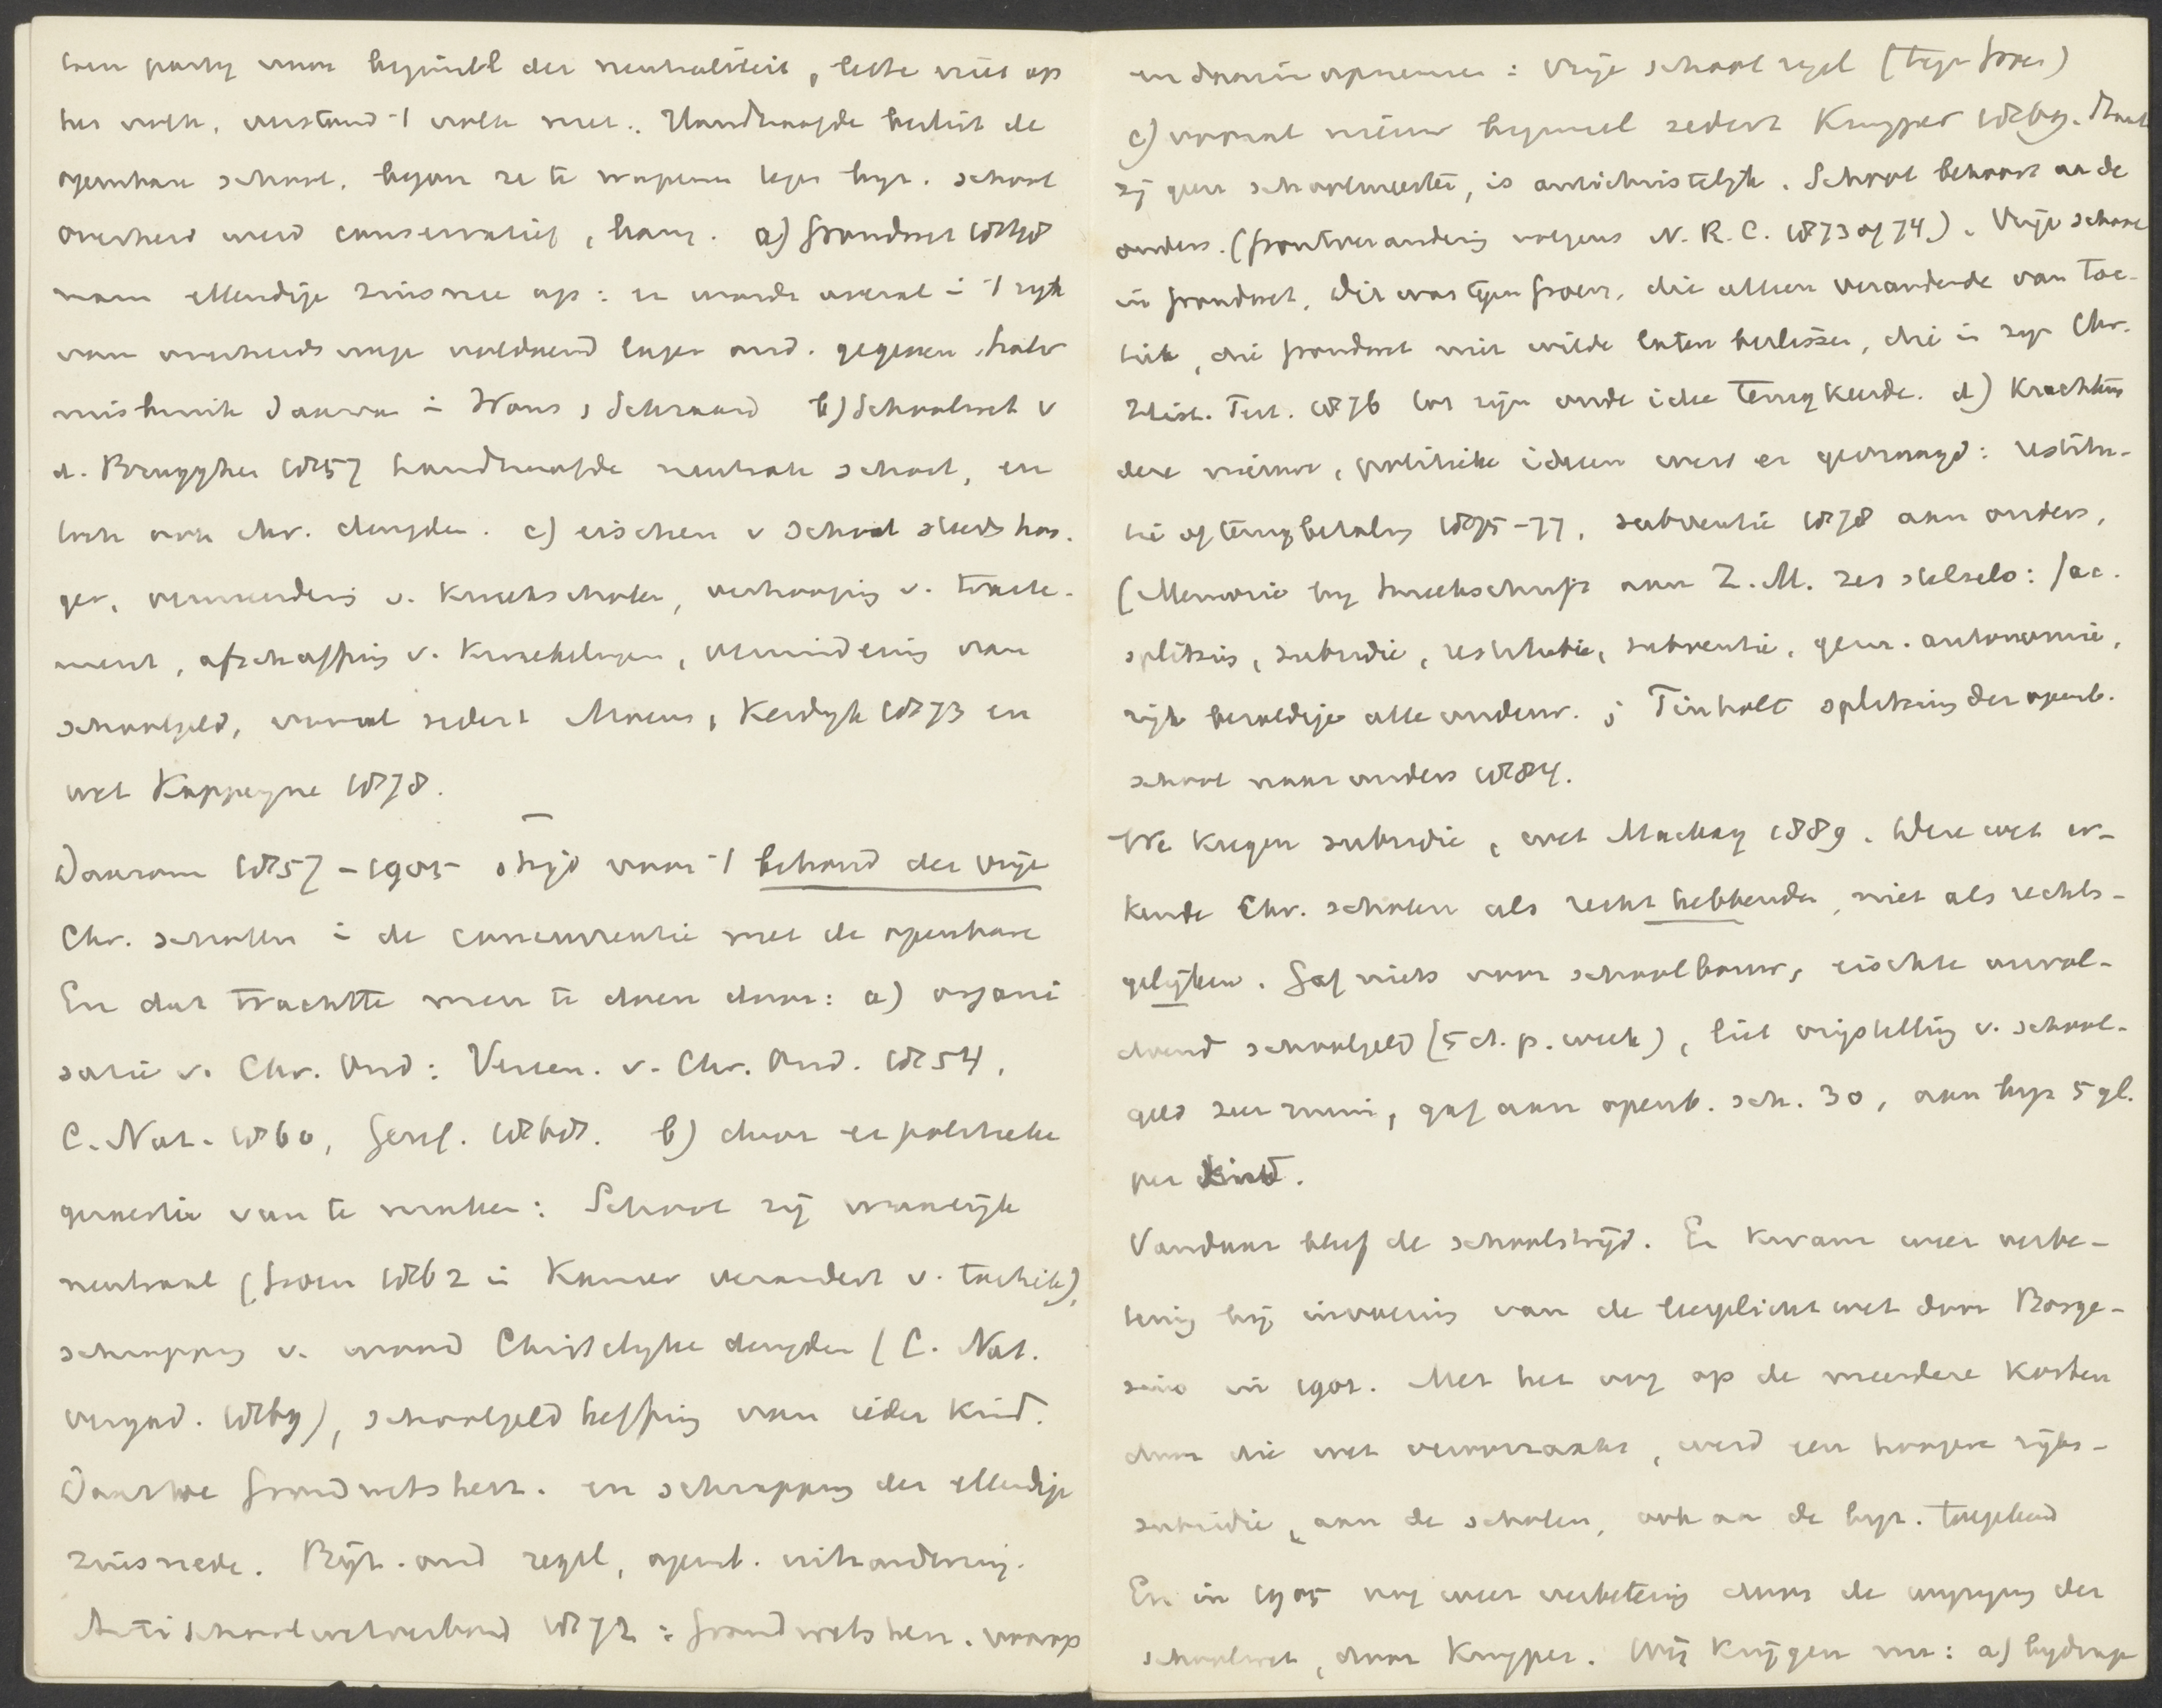 len party voor beginsel der neutraliteit, lette niet op
het volk, verstand 't volk niet. Handhaafde beslist de
openbare school, begon ze te wapenen tegen byz. school
overheid werd conservatief, bang. a) Grondwet 1848
nam ellendige zinsnee op: er wordt overal in 't ryk
van overheidswege voldoend lager ond. gegeven,
misbruik daarvan in Wons, Schraard b) Schoolwet v
d. Brugghen 1857 handhaafde neutrale school, en
toch ook chr. deugden. c) eischen v school steeds hoo-
ger, vermeerdering v. kweekscholen, verhooging v. trakte-
ment, afschaffing v. kweekelingen, vermindering van
schoolgeld, vooral sedert Moens, Kerdyk 1873 en
wet Kappeyne 1878.
Daarom 1857-1905 strijd voor 't behoud der vrije
Chr. scholen in de concurrentie met de openbare
En dat trachtte men te doen door: a) organi
satie v. Chr. Ond: Vereen. v. Chr. Ond. 1854,
C. Nat. 1860, Geref. 1868. b) door er politieke
quaestie van te maken: School zij waarlijk
neutraal (Groen 1862 in Kamer verandert v. tactiek),
schrapping v. woord Christelyke deugden (C. Nat.
vergad. 1869), schoolgeld heffing van ieder kind.
Daartoe Grondwetsherz. en schrapping der ellendige
zinsnede. Bijz. ond regel, openb. uitzondering.
Antischoolwetverbond 1872: Grondwetsherz. voorop
en daarin opnemen: Vrije school regel (tegen Groen)
c) vooral nieuw beginsel sedert Kuyper 1869. Staat
zij geen schoolmeester, is antichristelyk. School behoort aan de
ouders. (frontverandering volgens N. R. C. 1873 of 74). Vrije school
in grondwet. Dit was tegen Groen, die alleen veranderde van tac-
tiek, die grondwet niet wilde laten beslissen, die in zyn Chr.
Hist. Test. 1876 tot zijn oude idee terugkeerde. d) Krachtens
deze nieuwe, politieke ideeen werd er gevraagd: restitu-
tie of terugbetaling 1875-77, subventie 1878 aan ouders,
(Memorie bij smeekschrift aan Z.M. zes stelsels: fac.
splitsing, subsidie, restitutie, subventie, gem. autonomie,
rijk bezoldige alle onderw.; Tinholt splitsing der openb.
school naar ouders 1884.
We kregen subsidie, wet Mackay 1889. Deze wet er-
kende Chr. scholen als recht hebbende, niet als rechts-
gelijken. Gaf niets voor schoolbouw, eischte onvol-
doend schoolgeld (5 ct. p. week), liet vrijstelling v. school-
geld zeer ruim, gaf aan openb. sch. 30, aan byz 5 gl.
per kind.
Vandaar bleef de schoolstrijd. Er kwam weer verbe-
tering bij invoering van de leerplichtwet door Borge-
sius in 1901. Met het oog op de meerdere kosten
door die wet veroorzaakt, werd een hoogere rijks-
subsidie, aan de scholen, ook aan de byz. toegekend
En in 1905 nog weer verbetering door de wyziging der
schoolwet, door Kuyper. Wij krijgen nu: a) bydrage